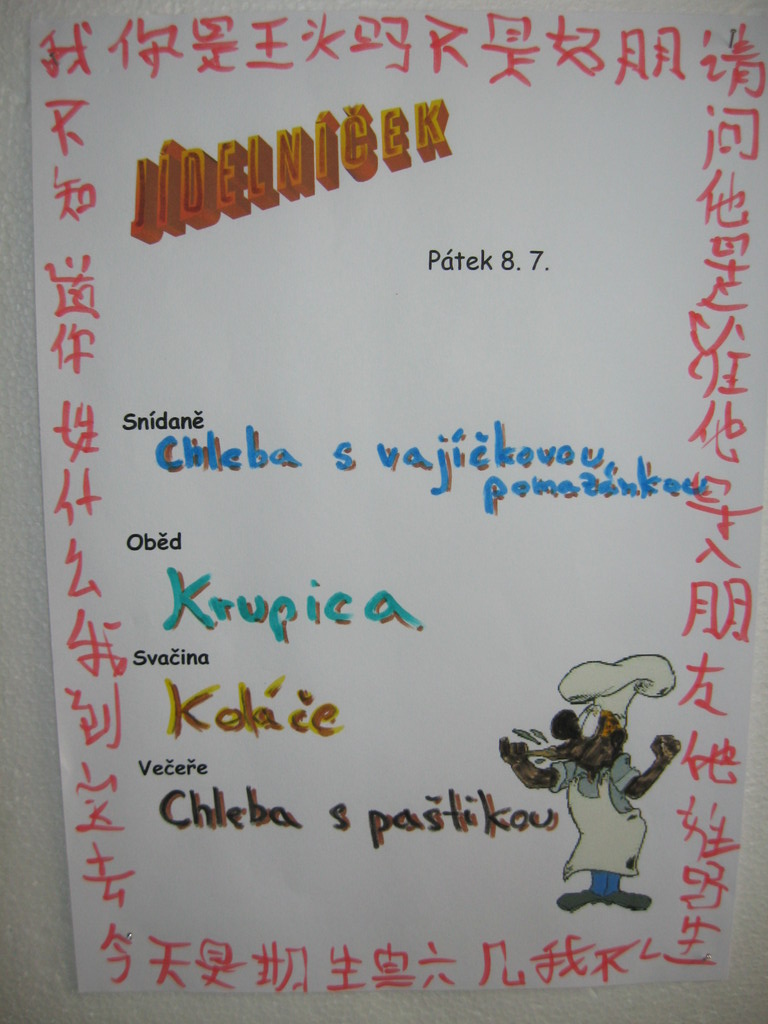 我你是王火吗不是好朋
请问他是谁他是人朋友他姓
不知道你姓什么我到这去
JÍDELNÍČEK
Pátek 8. 7.
Snídaně
Chleba s vajíčkovou
pomazánkou
Oběd
Krupica
Svačina
Koláče
Večeře
Chleba s paštikou
今天是期生
六几我不